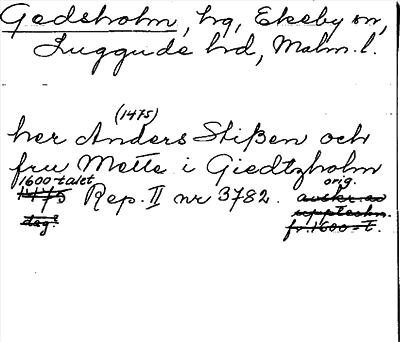 Gedsholm, hg, Ekeby sn,
Luggude hd, Malm. l.
(1475)
her Anders Stißen och
fru Mette i Giedtzholm
1600-talet orig.
1475 Rep. II nr 3782. avskr. av
dag? upptechn.
fr. 1600-t.